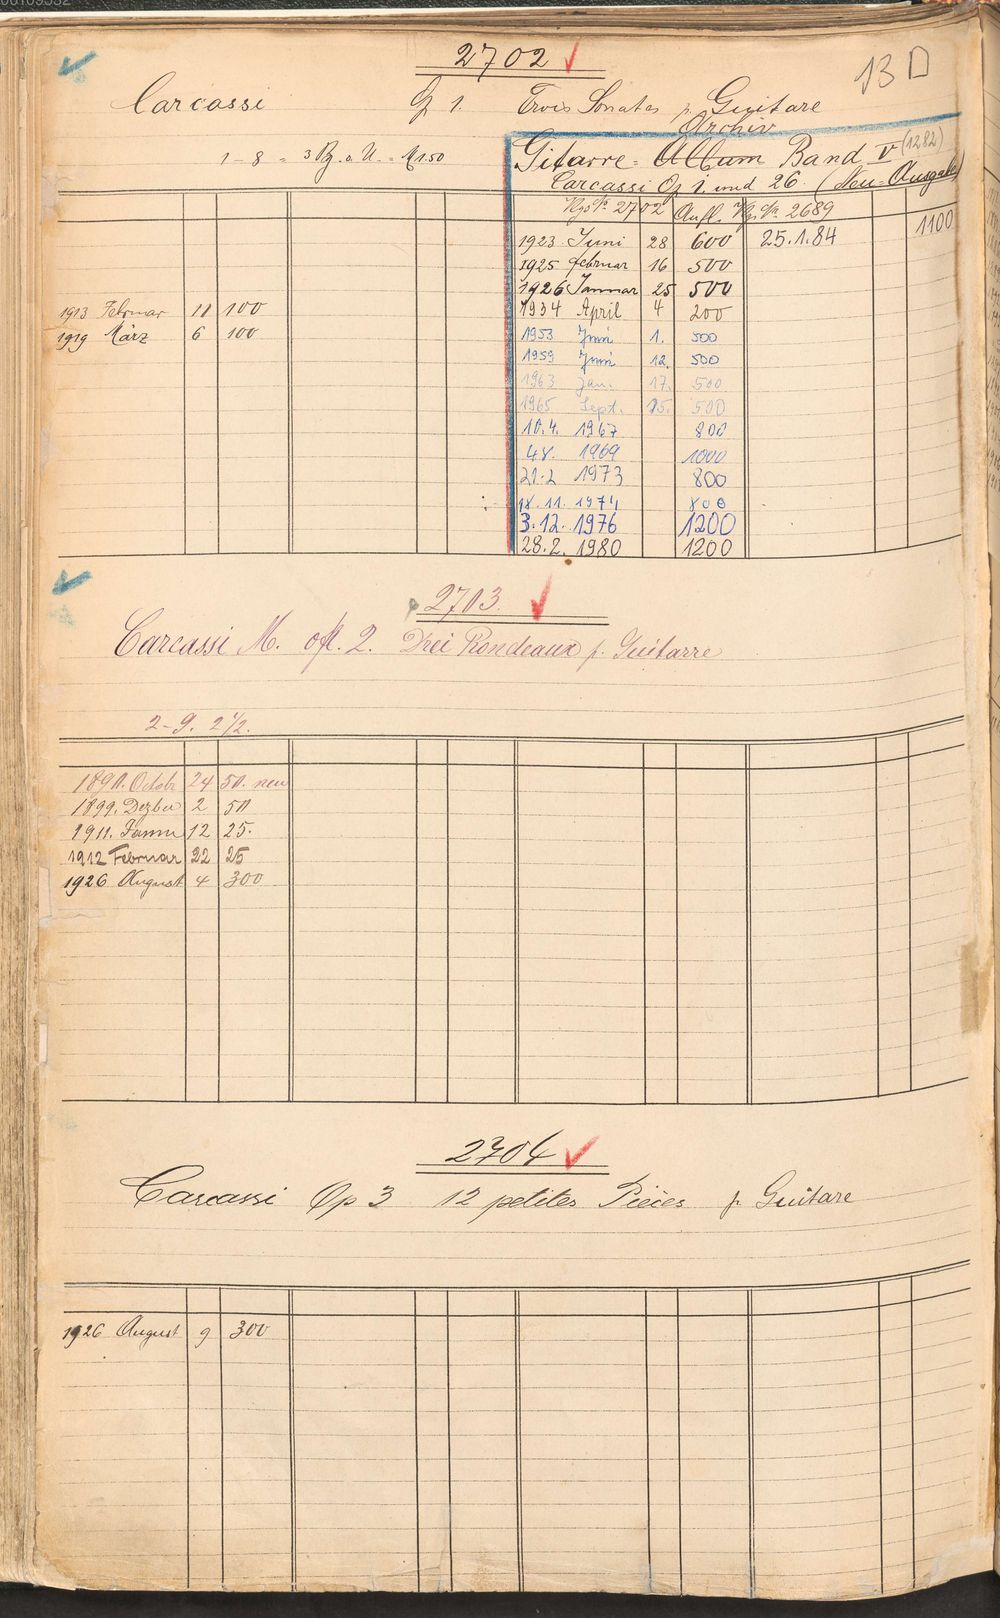 2702
13 D
Carcassi Op 1. Trois Sonates p. Guitare
Archiv
1-8 = 3 Bg. u. U. = M 1.50
Gitarre-Album Band V (1282)
Carcassi Op 1. und 26. (Neu-Ausgabe)
2702 Aufl. 2689
1100
1923 Juni 28 600 25.1.84
1925 Februar 16 500
1926 Januar 25 500
1913 Februar 11 100 1934 April 4 200
1919 März 6 100 1953 Juni 1. 500
1959 Juni 12. 500
1963 Jan. 17. 500
1965 Sept. 15. 500
10.4. 1967 800
4.8. 1969 1000
21.2 1973 800
18.11. 1974 800
3.12. 1976 1200
28.2. 1980 1200
2703
Carcassi M. op. 2. Drei Rondeaux p. Guitarre
2-9. 2 1/2.
1890. Octobr 24 50. neu
1899. Dezber 2 50
1911. Januar 12 25.
1912 Februar 22 25
1926 August 4 300
2704
Carcassi Op 3 12 petites Pièces p. Guitare
1926 August 9 300